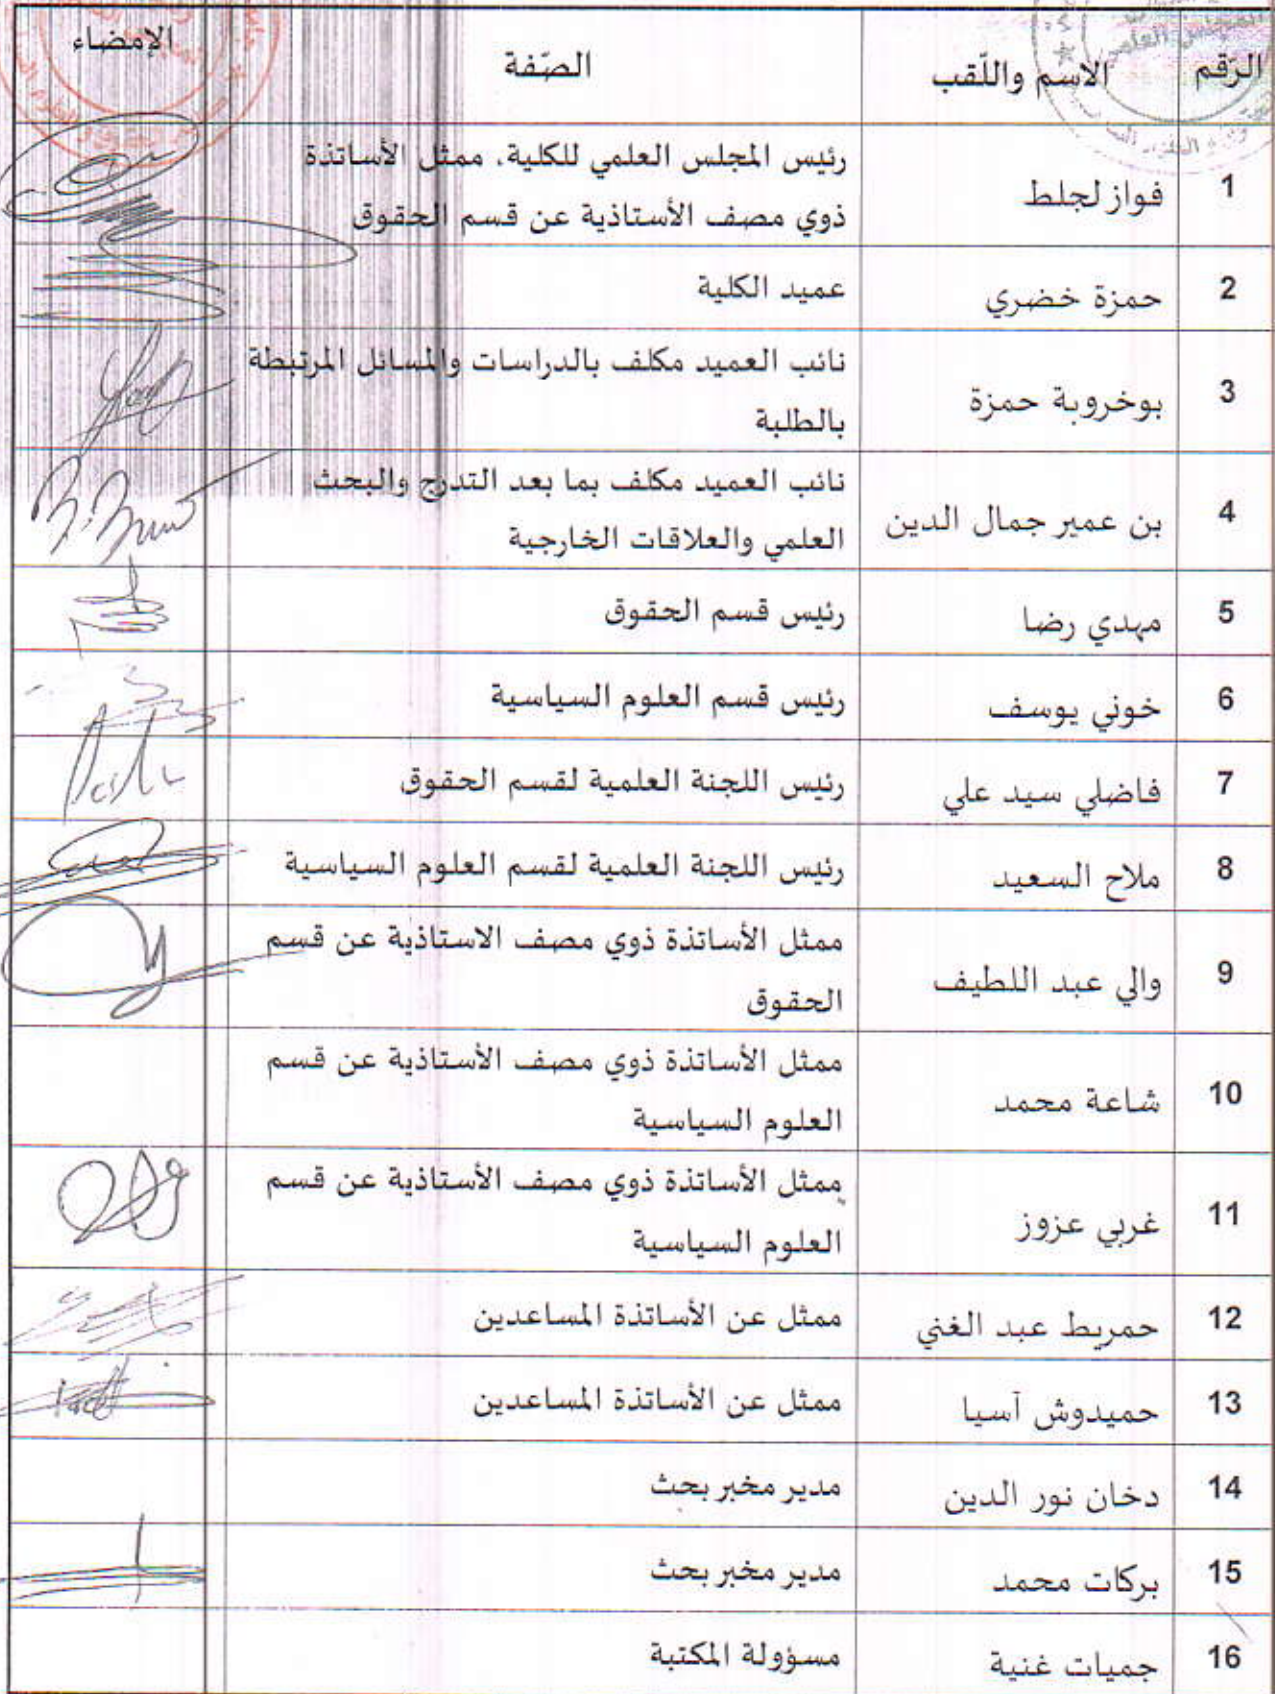 الرّقم الاسم واللّقب الصّفة الإمضاء
1 فواز لجلط رئيس المجلس العلمي للكلية، ممثل الأساتذة
ذوي مصف الأستاذية عن قسم الحقوق
2 حمزة خضري عميد الكلية
3 بوخروبة حمزة نائب العميد مكلف بالدراسات والمسائل المرتبطة
بالطلبة
4 بن عمير جمال الدين نائب العميد مكلف بما بعد التدرج والبحث
العلمي والعلاقات الخارجية
5 مهدي رضا رئيس قسم الحقوق
6 خوني يوسف رئيس قسم العلوم السياسية
7 فاضلي سيد علي رئيس اللجنة العلمية لقسم الحقوق
8 ملاح السعيد رئيس اللجنة العلمية لقسم العلوم السياسية
9 والي عبد اللطيف ممثل الأساتذة ذوي مصف الاستاذية عن قسم
الحقوق
10 شاعة محمد ممثل الأساتذة ذوي مصف الأستاذية عن قسم
العلوم السياسية
11 غربي عزوز ممثل الأساتذة ذوي مصف الأستاذية عن قسم
العلوم السياسية
12 حمريط عبد الغني ممثل عن الأساتذة المساعدين
13 حميدوش آسيا ممثل عن الأساتذة المساعدين
14 دخان نور الدين مدير مخبر بحث
15 بركات محمد مدير مخبر بحث
16 جميات غنية مسؤولة المكتبة